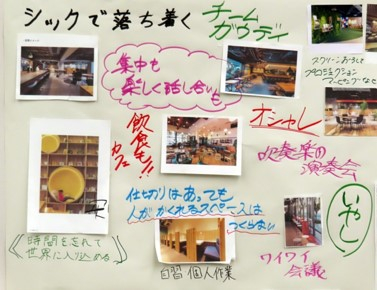 シックで落ち着く
チーム
ガウディ
スクリーンおろして
プロジェクション
マッピングなど
集中も
楽しく話し合いも
飲食も!!
カフェ
オシャレ
吹奏楽の
演奏会
仕切りはあっても
人がかくれるスペースは
つくらない
いやし
時間を忘れて
世界に入り込める
自習 個人作業
ワイワイ
会議